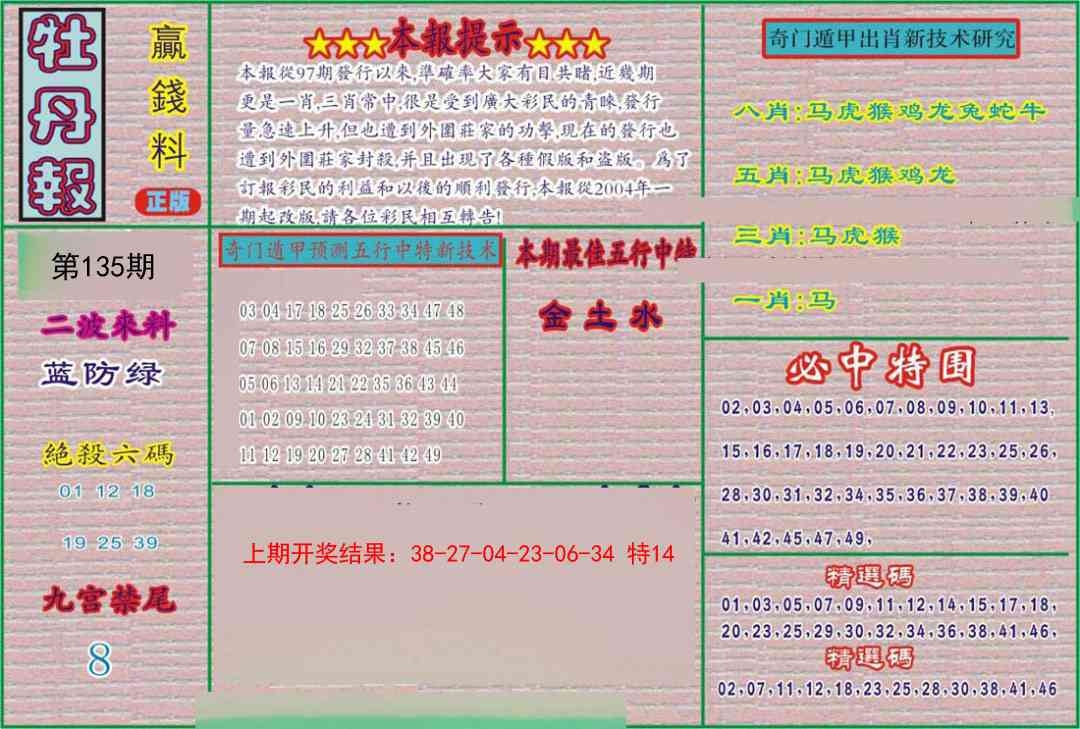 牡丹報
贏錢料
正版
★★★本報提示★★★
本報從97期發行以來,準確率大家有目共睹,近幾期
更是一肖,三肖常中,很是受到廣大彩民的青睞,發行
量急速上升,但也遭到外圍莊家的功擊,現在的發行也
遭到外圍莊家封殺,并且出現了各種假版和盗版。爲了
訂報彩民的利益和以後的順利發行,本報從2004年一
期起改版,請各位彩民相互轉告!
奇门遁甲出肖新技术研究
八肖:马虎猴鸡龙兔蛇牛
五肖:马虎猴鸡龙
三肖:马虎猴
一肖:马
第135期
二波來料
蓝防绿
絶殺六碼
01 12 18
19 25 39
九宫禁尾
8
奇门遁甲预测五行中特新技术
03 04 17 18 25 26 33 34 47 48
07 08 15 16 29 32 37 38 45 46
05 06 13 14 21 22 35 36 43 44
01 02 09 10 23 24 31 32 39 40
11 12 19 20 27 28 41 42 49
本期最佳五行中特
金土水
上期开奖结果：38-27-04-23-06-34 特14
必中特围
02,03,04,05,06,07,08,09,10,11,13,
15,16,17,18,19,20,21,22,23,25,26,
28,30,31,32,34,35,36,37,38,39,40
41,42,45,47,49,
精選碼
01,03,05,07,09,11,12,14,15,17,18,
20,23,25,29,30,32,34,36,38,41,46,
精選碼
02,07,11,12,18,23,25,28,30,38,41,46